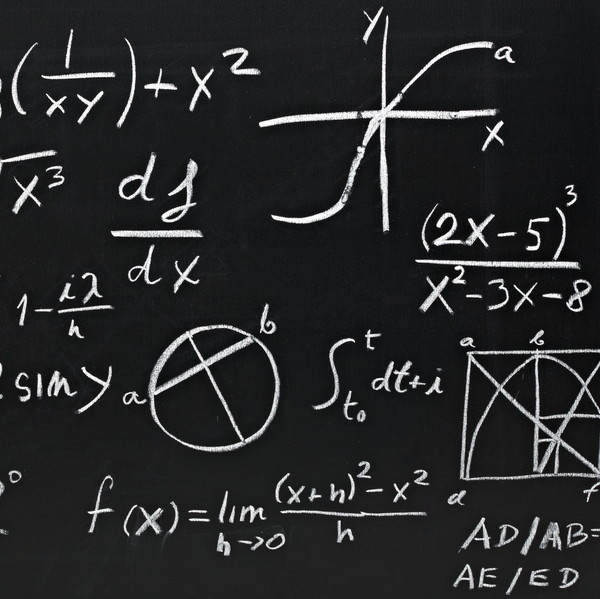 (1/xy) + x²
y
a
x
√x³
df/dx
(2x-5)³/x²-3x-8
1-iλ/h
b
a
sin y
∫ₜ₀ᵗ dt+i
a b
a f
f(x)=lim h→0 (x+h)²-x²/h
AD/AB=
AE/ED